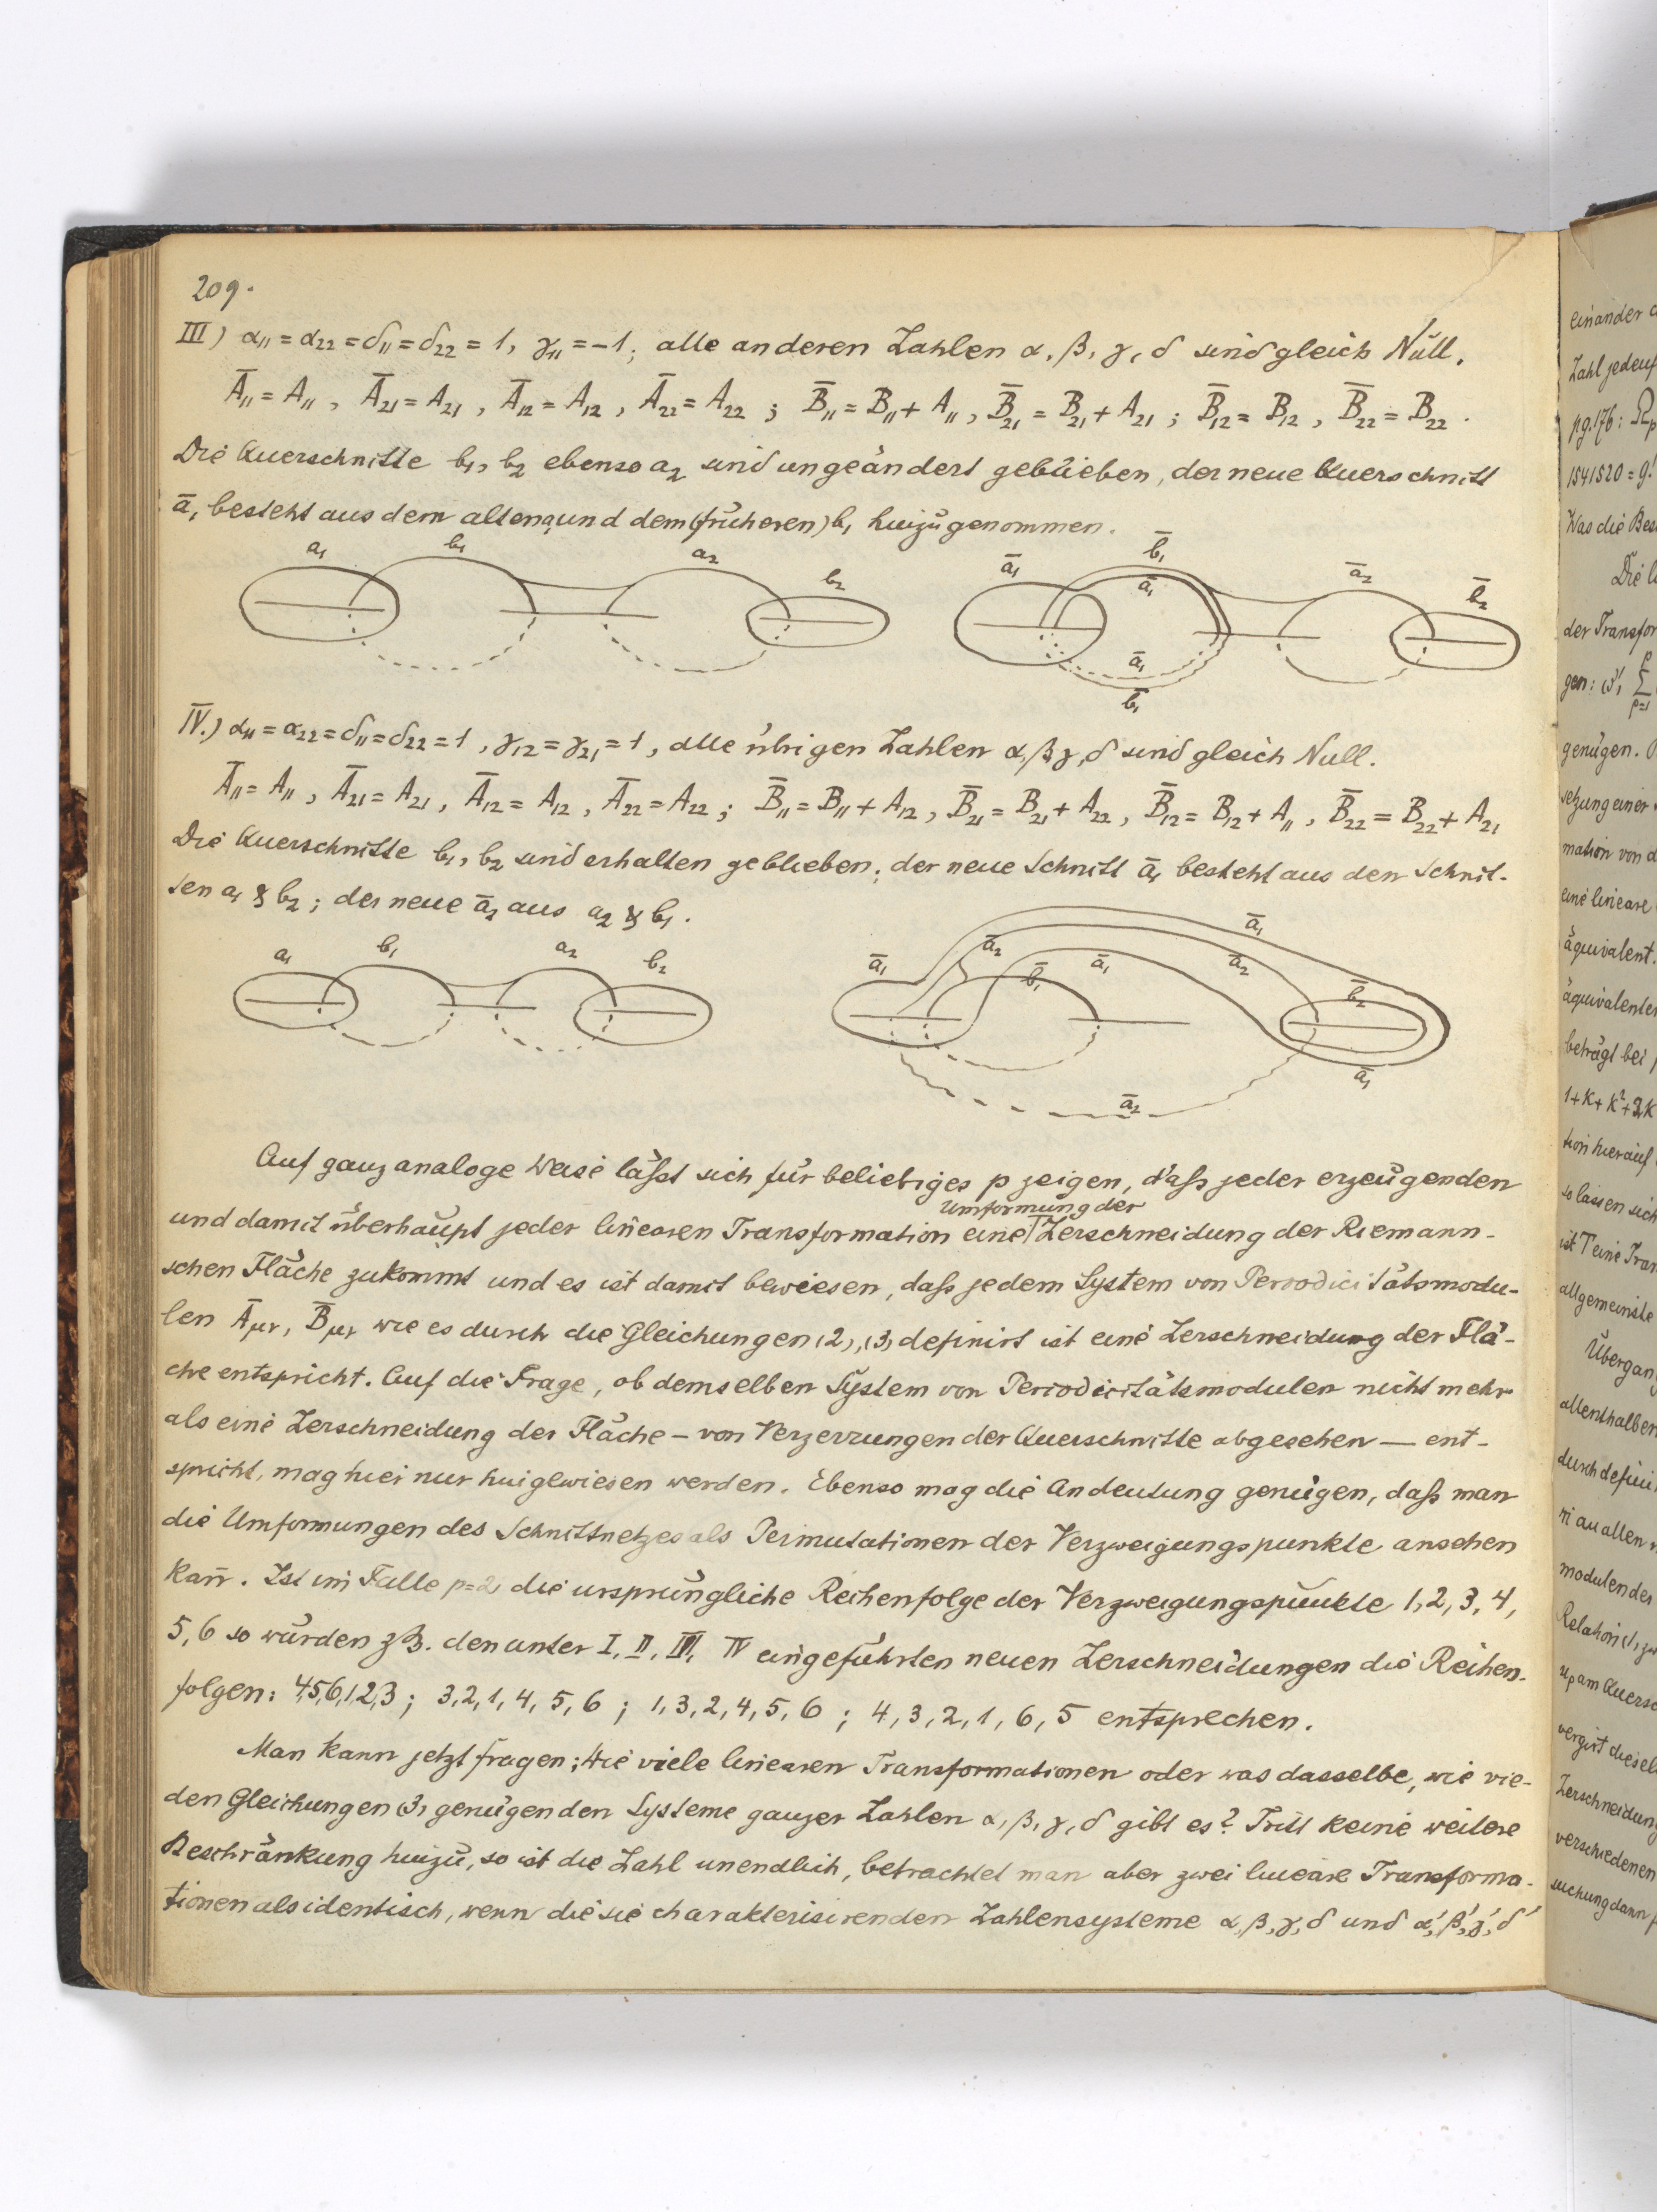 209.
III) α₁₁ = α₂₂ = δ₁₁ = δ₂₂ = 1, γ₁₁ = −1; alle anderen Zahlen α, β, γ, δ sind gleich Null.
Ā₁₁ = A₁₁, Ā₂₁ = A₂₁, Ā₁₂ = A₁₂, Ā₂₂ = A₂₂; B̄₁₁ = B₁₁ + A₁₁, B̄₂₁ = B₂₁ + A₂₁; B̄₁₂ = B₁₂, B̄₂₂ = B₂₂.
Die Querschnitte b₁, b₂ ebenso a₂ sind ungeändert geblieben, der neue Querschnitt
ā₁ besteht aus dem alten a₁ und dem (früheren) b₁ hinzugenommen.
a₁ b₁ a₂ b₂ ā₁ b̄₁ ā₁ ā₂ b̄₂
ā₁
b̄₁
IV.) α₁₁ = α₂₂ = δ₁₁ = δ₂₂ = 1, γ₁₂ = γ₂₁ = 1, alle übrigen Zahlen α, β, γ, δ sind gleich Null.
Ā₁₁ = A₁₁, Ā₂₁ = A₂₁, Ā₁₂ = A₁₂, Ā₂₂ = A₂₂; B̄₁₁ = B₁₁ + A₁₂, B̄₂₁ = B₂₁ + A₂₂, B̄₁₂ = B₁₂ + A₁₁, B̄₂₂ = B₂₂ + A₂₁
Die Querschnitte b₁, b₂ sind erhalten geblieben; der neue Schnitt ā₁ besteht aus den Schnit-
ten a₁ & b₂; der neue ā₂ aus a₂ & b₁.
a₁ b₁ a₂ b₂ ā₁ ā₂ b̄₁ ā₁ ā₂ ā₁ b̄₂
ā₁
ā₂
Auf ganz analoge Weise läßt sich für beliebiges p zeigen, daß jeder erzeugenden
Umformung der
und damit überhaupt jeder linearen Transformation eine Zerschneidung der Riemann-
schen Fläche zukommt und es ist damit bewiesen, daß jedem System von Periodicitätsmodu-
len Āμν, B̄μν wie es durch die Gleichungen (2), (3) definirt ist eine Zerschneidung der Flä-
che entspricht. Auf die Frage, ob demselben System von Periodicitätsmodulen nicht mehr
als eine Zerschneidung der Fläche – von Verzerrungen der Querschnitte abgesehen – ent-
spricht, mag hier nur hingewiesen werden. Ebenso mag die Andeutung genügen, daß man
die Umformungen des Schnittnetzes als Permutationen der Verzweigungspunkte ansehen
kan̄. Ist im Falle p=2 die ursprüngliche Reihenfolge der Verzweigungspunkte 1, 2, 3, 4,
5, 6 so würden z.B. den unter I, II, III, IV eingeführten neuen Zerschneidungen die Reihen-
folgen: 4,5,6,1,2,3; 3, 2, 1, 4, 5, 6; 1, 3, 2, 4, 5, 6; 4, 3, 2, 1, 6, 5 entsprechen.
Man kann jetzt fragen: Wie viele linearen Transformationen oder was dasselbe, wie vie-
den Gleichungen (3) genügenden Systeme ganzer Zahlen α, β, γ, δ gibt es? Tritt keine weitere
Beschränkung hinzu, so ist die Zahl unendlich, betrachtet man aber zwei lineare Transforma-
tionen als identisch, wenn die sie charakterisirenden Zahlensysteme α, β, γ, δ und α', β', γ', δ'
einander
Zahl
pg. 176:
1541520 = 9!
Was die
Die
der
gen:
genügen.
setzung einer
mation von
eine lineare
äquivalent.
beträgt bei
1+K+K²+2K
tion hierauf
so lassen sich
ist T eine
allgemeinste
allenthalben
durch
an allen
modulen der
Relation
am
Zerschneidung
verschiedenen
suchung dann